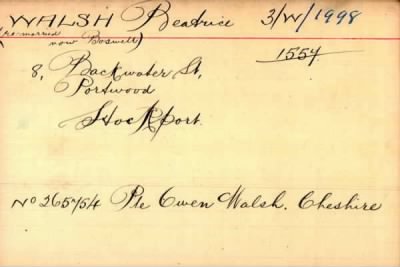 WALSH Beatrice 3/W/1998
(re-married
now Boswell)
1557
8, Backwater St,
Portwood
Stockport.
No 265754 Pte Owen Walsh. Cheshire